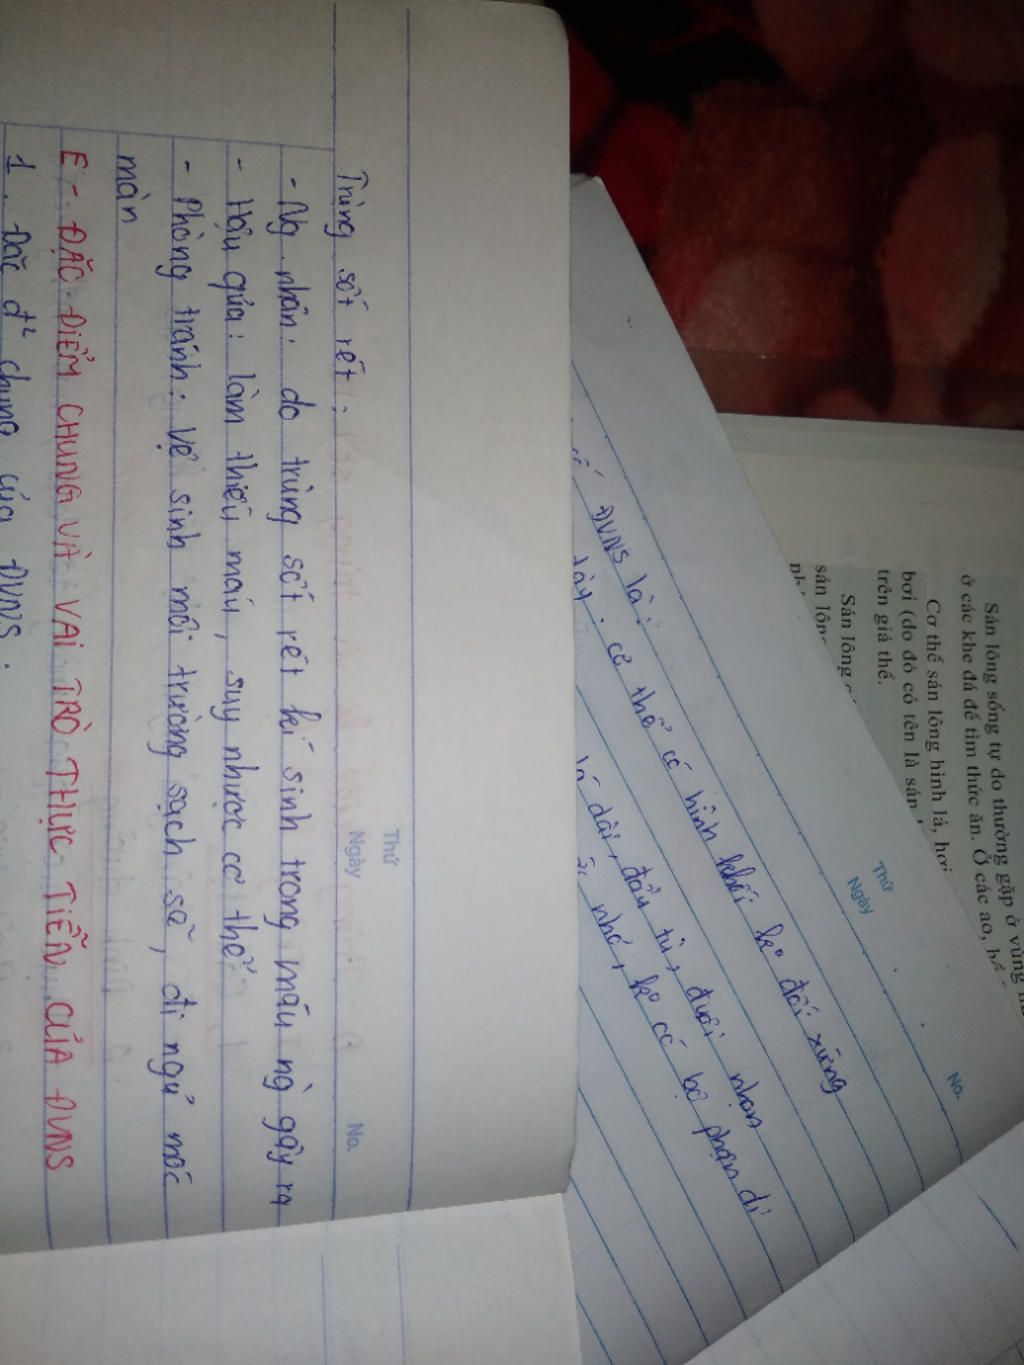 Thứ
Ngày
No.
Trùng sốt rét:
- Ng nhân: do trùng sốt rét kí sinh trong máu ng gây ra
- Hậu qủa: làm thiếu máu, suy nhược cơ thể
- Phòng tránh: vệ sinh môi trường sạch sẽ, đi ngủ mắc
màn
E - ĐẶC ĐIỂM CHUNG VÀ VAI TRÒ THỰC TIỄN CỦA ĐVNS
1. Đặc đ² chung của ĐVNS:
Thứ
Ngày
No.
ĐVNS là:
cơ thể có hình khối ko đối xứng
lá dài, đầu tù, đuôi nhọn
nhỏ, ko có bộ phận di
Sán lông sống tự do thường gặp ở vùng
ở các khe đá để tìm thức ăn. Ở các ao,
Cơ thể sán lông hình lá, hơi
bơi (do đó có tên là sán
trên giá thể.
Sán lông
sán lông